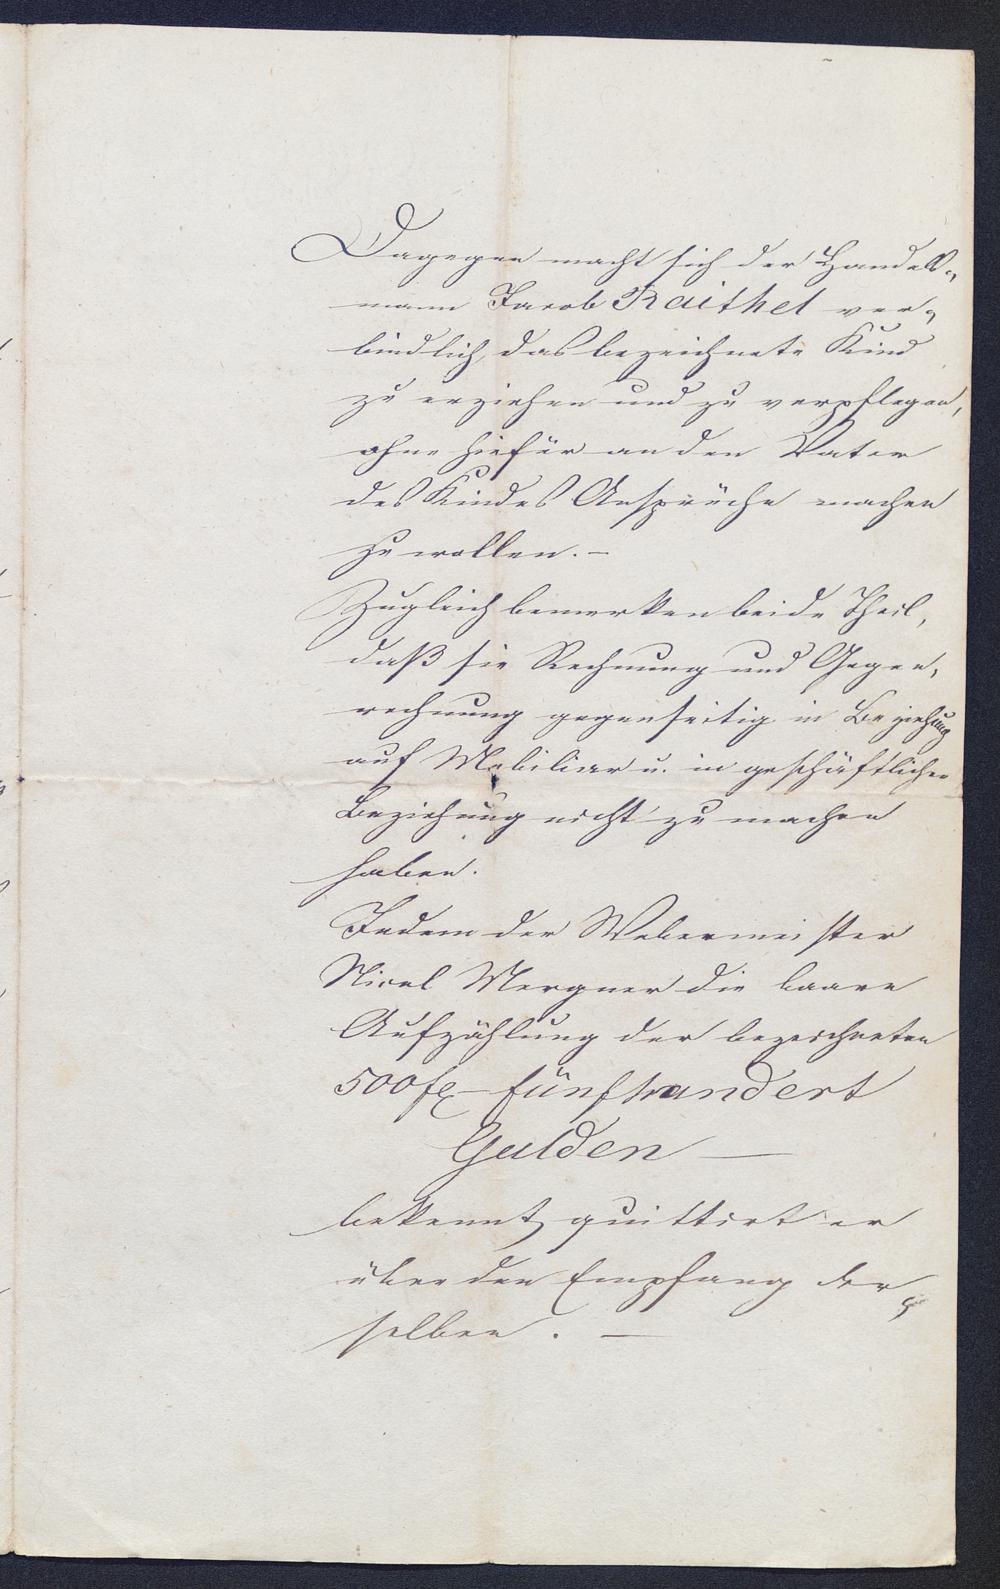 Dagegen macht sich der Handels-
mann Jacob Raithel ver-
bindlich, das bezeichnete Kind
zu erziehen und zu verpflegen,
ohne hiefür an den Vater
des Kindes Ansprüche machen
zu wollen. –
Zugleich bemerken beide Theil,
daß sie Rechnung und Gegen-
rechnung gegenseitig in Beziehung
auf Mobiliar u. in geschäftlicher
Beziehung nicht zu machen
haben.
Indem der Webermeister
Nicol Mergner die baare
Aufzählung der bezeichneten
500 fl – fünfhundert
Gulden —
bekennt, quittirt er
über den Empfang der-
selben. —